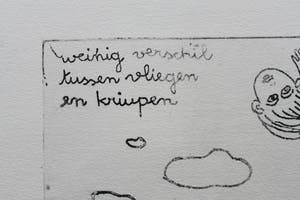 weinig verschil
tussen vliegen
en kruipen